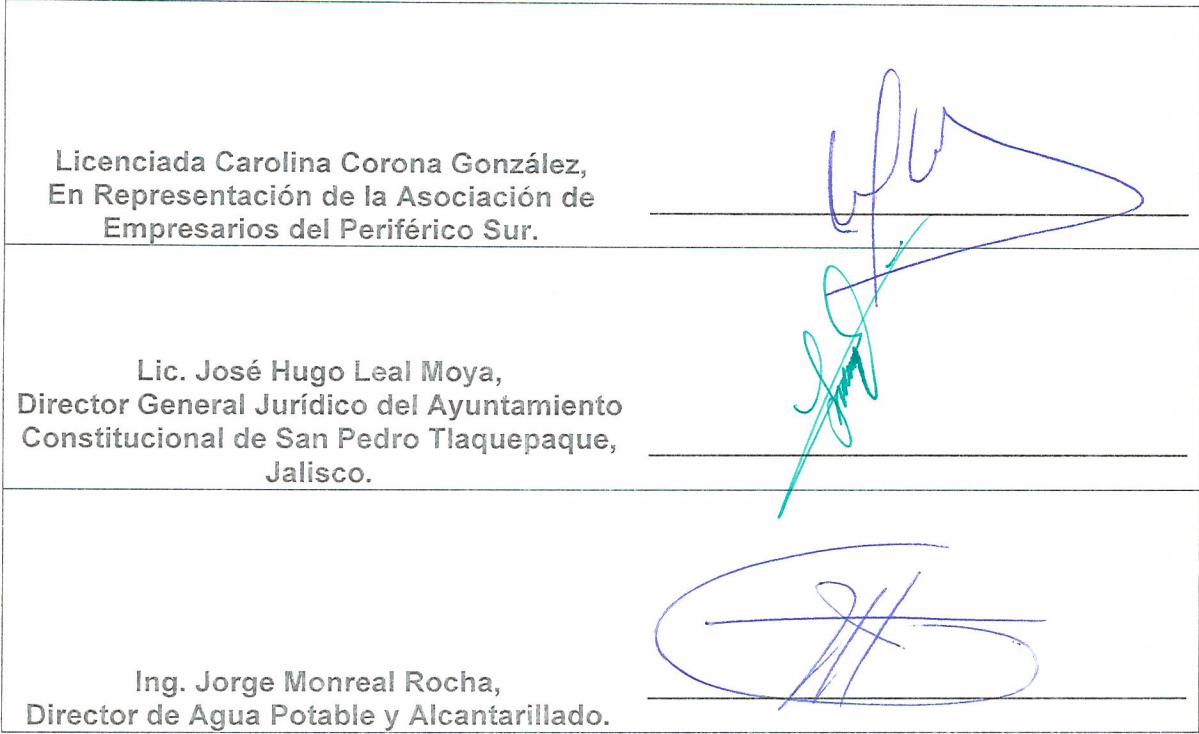 Licenciada Carolina Corona González,
En Representación de la Asociación de
Empresarios del Periférico Sur.
Lic. José Hugo Leal Moya,
Director General Jurídico del Ayuntamiento
Constitucional de San Pedro Tlaquepaque,
Jalisco.
Ing. Jorge Monreal Rocha,
Director de Agua Potable y Alcantarillado.